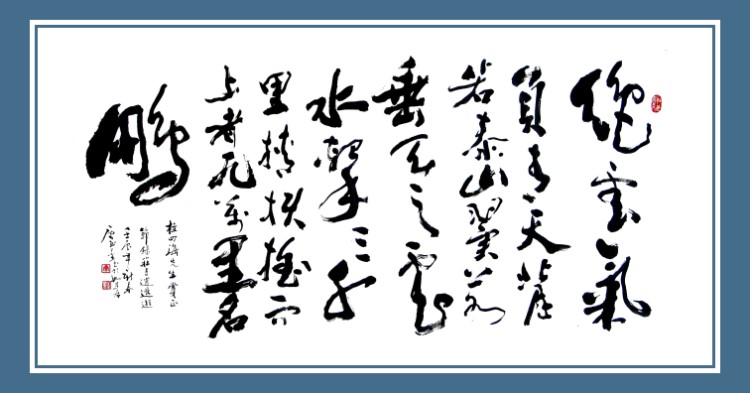 絕雲氣
負青天背
若泰山翼若
垂天之雲
水擊三千
里摶扶搖而
上者九萬里名
鵬
先生
節錄莊子逍遙遊
壬辰年新春